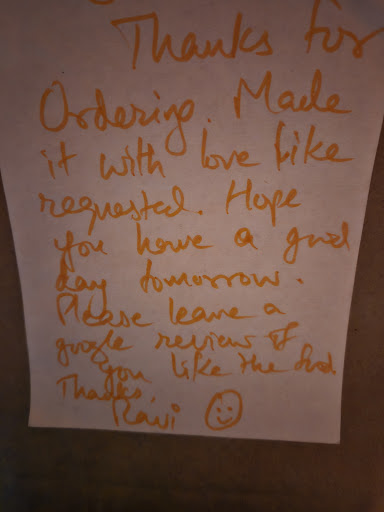 Thanks for
Ordering. Made
it with love like
requested. Hope
you have a good
day tomorrow.
Please leave a
google review if
you like the food
Thanks,
Ravi ☺